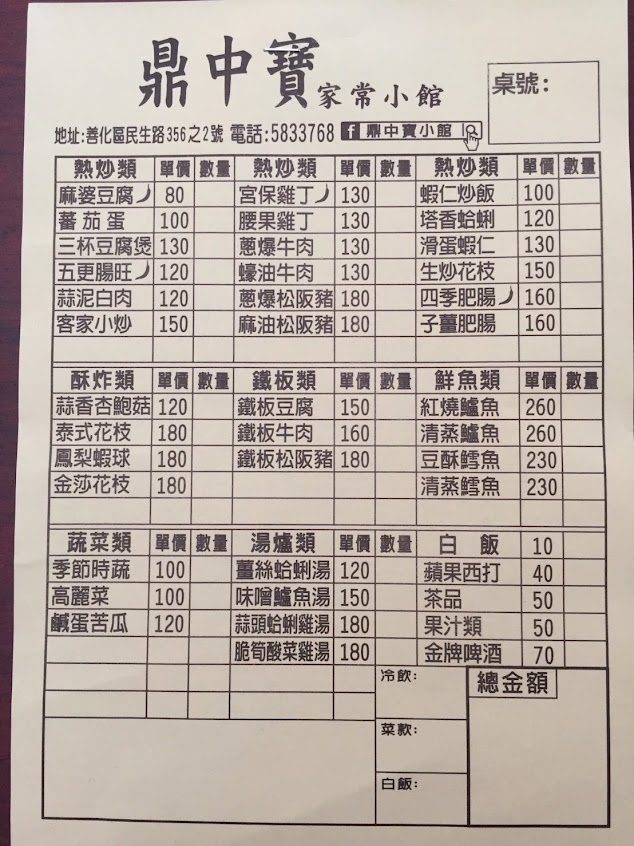 鼎中寶 家常小館
桌號:
地址:善化區民生路356之2號 電話:5833768 f 鼎中寶小館
熱炒類 單價 數量 熱炒類 單價 數量 熱炒類 單價 數量
麻婆豆腐 80 宮保雞丁 130 蝦仁炒飯 100
蕃茄蛋 100 腰果雞丁 130 塔香蛤蜊 120
三杯豆腐煲 130 蔥爆牛肉 130 滑蛋蝦仁 130
五更腸旺 120 蠔油牛肉 130 生炒花枝 150
蒜泥白肉 120 蔥爆松阪豬 180 四季肥腸 160
客家小炒 150 麻油松阪豬 180 子薑肥腸 160
酥炸類 單價 數量 鐵板類 單價 數量 鮮魚類 單價 數量
蒜香杏鮑菇 120 鐵板豆腐 150 紅燒鱸魚 260
泰式花枝 180 鐵板牛肉 160 清蒸鱸魚 260
鳳梨蝦球 180 鐵板松阪豬 180 豆酥鱈魚 230
金莎花枝 180 清蒸鱈魚 230
蔬菜類 單價 數量 湯爐類 單價 數量 白飯 10
季節時蔬 100 薑絲蛤蜊湯 120 蘋果西打 40
高麗菜 100 味噌鱸魚湯 150 茶品 50
鹹蛋苦瓜 120 蒜頭蛤蜊雞湯 180 果汁類 50
脆筍酸菜雞湯 180 金牌啤酒 70
冷飲: 總金額
菜款:
白飯: